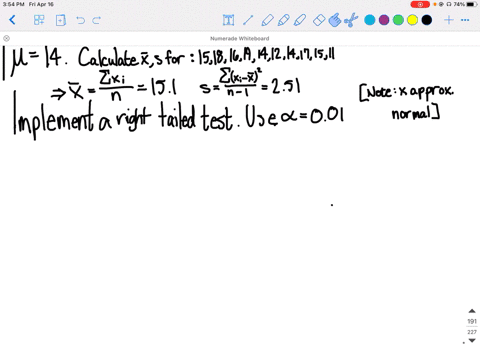 3:54 PM Fri Apr 16
74%
Numerade Whiteboard
μ = 14. Calculate x̄, s for : 15, 18, 16, 19, 14, 12, 14, 17, 15, 11
⇒ x̄ = Σxi / n = 15.1 s = Σ(xi - x̄)² / n-1 = 2.51
[Note: x approx. normal]
Implement a right tailed test. Use α = 0.01
191
227